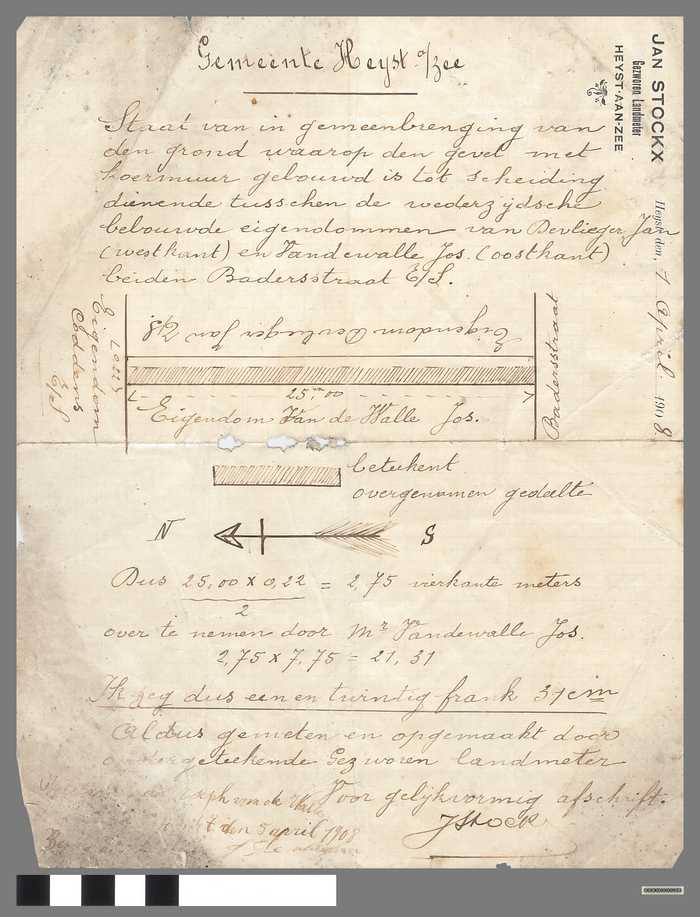 Gemeente Heyst a/zee
JAN STOCKX
Gezworen Landmeter
HEYST-AAN-ZEE
Heyst, den, 7 April 1908.
Staat van in gemeenbrenging van
den grond waarop den gevel met
koermuur gebouwd is tot scheiding
dienende tusschen de wederzijdsche
bebouwde eigendommen van Devlieger Jan
(westkant) en Vandewalle Jos. (oostkant)
beiden Badersstraat E/S.
Eigendom Devlieger Jan E/S.
Eigendom
E/S
25,m00
Eigendom Van de Walle Jos.
Badersstraat
beteekent
overgenomen gedeelte
N S
Dus 25,00 x 0,22 = 2,75 vierkante meters
2
over te nemen door Mr Vandewalle Jos.
2,75 x 7,75 = 21,31
Ik zeg dus een en twintig frank 31 cm
Aldus gemeten en opgemaakt door
ondergeteekende Gezworen landmeter
Voor gelijkvormig afschrift.
JStockx
Joseph van de Walle
den 5 april 1908